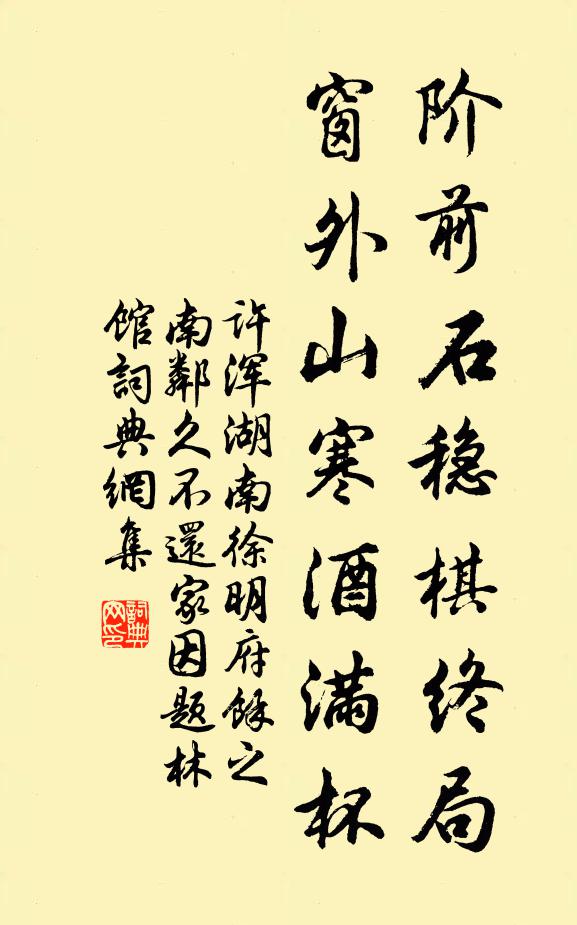 阶前石稳棋终局
窗外山寒酒满杯
许浑湖南徐明府馀之
南鄰久不還家因题林
馆詞典網集
詞典
网印